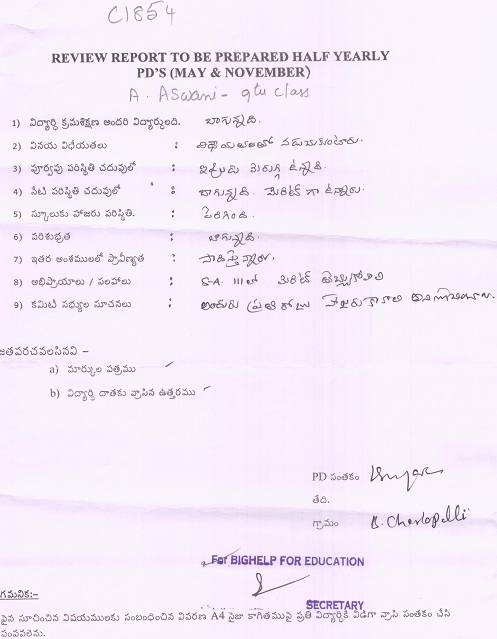 C1854
REVIEW REPORT TO BE PREPARED HALF YEARLY
PD'S (MAY & NOVEMBER)
A. ASwani - 9th class
1) విద్యార్థి క్రమశిక్షణ అందరి విద్యార్థులది. బాగున్నది.
2) వినయ విధేయతలు : విధేయతలతో నడుచుకుంటారు.
3) పూర్వపు పరిస్థితి చదువులో : ఇప్పుడు మెరుగ్గ ఉన్నది.
4) నేటి పరిస్థితి చదువులో : బాగున్నది. మెరిట్ గా ఉన్నారు.
5) స్కూలుకు హాజరు పరిస్థితి. : పెరిగింది.
6) పరిశుభ్రత : బాగున్నది.
7) ఇతర అంశములలో ప్రావీణ్యత : సాధిస్తున్నారు.
8) అభిప్రాయాలు / సలహాలు : S.A. III లో మెరిట్ తెచ్చుకోవాలి
9) కమిటి సభ్యుల సూచనలు : అందరు ప్రతి రోజు హాజరు కావాలి అని
జతపరచవలసినవి –
a) మార్కుల పత్రము ✓
b) విద్యార్థి దాతకు వ్రాసిన ఉత్తరము ✓
PD సంతకం
తేది.
గ్రామం K. Cherlopalli
For BIGHELP FOR EDUCATION
SECRETARY
గమనిక:–
పైన సూచించిన విషయములకు సంబంధించిన వివరణ A4 సైజు కాగితముపై ప్రతి విద్యార్థికి విడిగా వ్రాసి సంతకం చేసి
పంపవలెను.